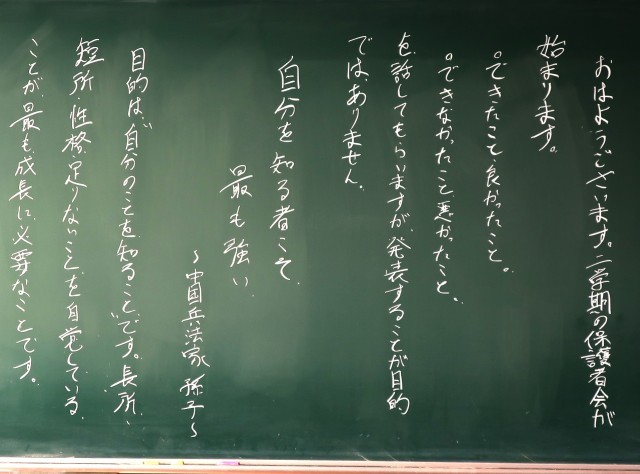 おはようございます。二学期の保護者会が
始まります。
。できたこと、良かったこと。
。できなかったこと悪かったこと。
を話してもらいますが、発表することが目的
ではありません。
自分を知る者こそ、
最も強い
～中国兵法家 孫子～
目的は、自分のことを知ることです。長所、
短所、性格、足りないことを自覚している、
ことが、最も成長に必要なことです。